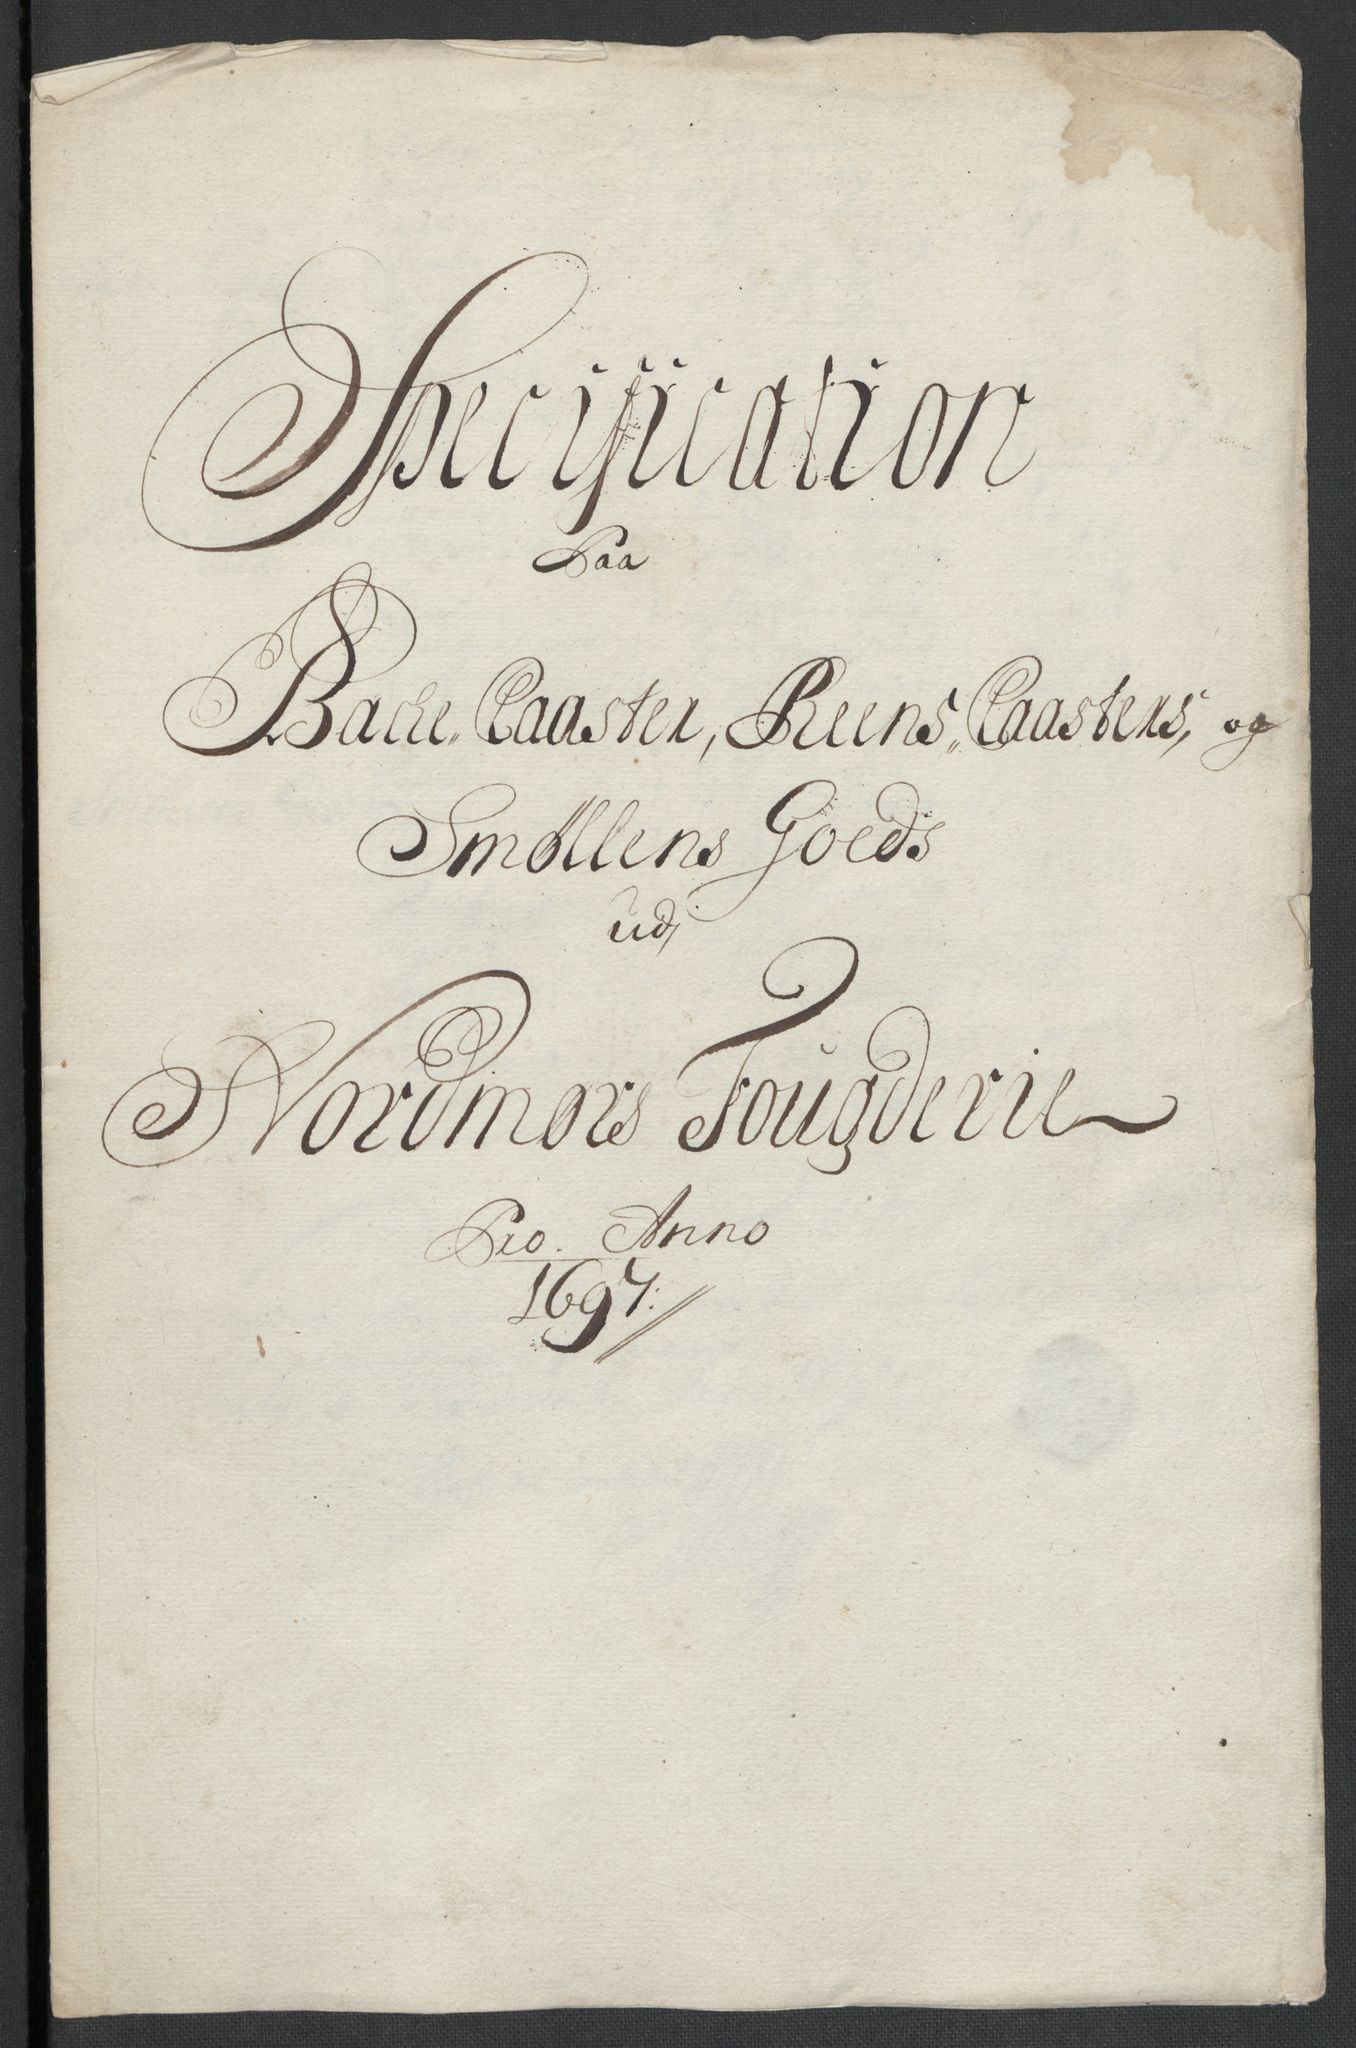 Specification
Paa
Bache Claaster, Reens Claasters, og
Smøllens Goeds
udj
Nordmørs Fougderie
Pro. Anno
1697: